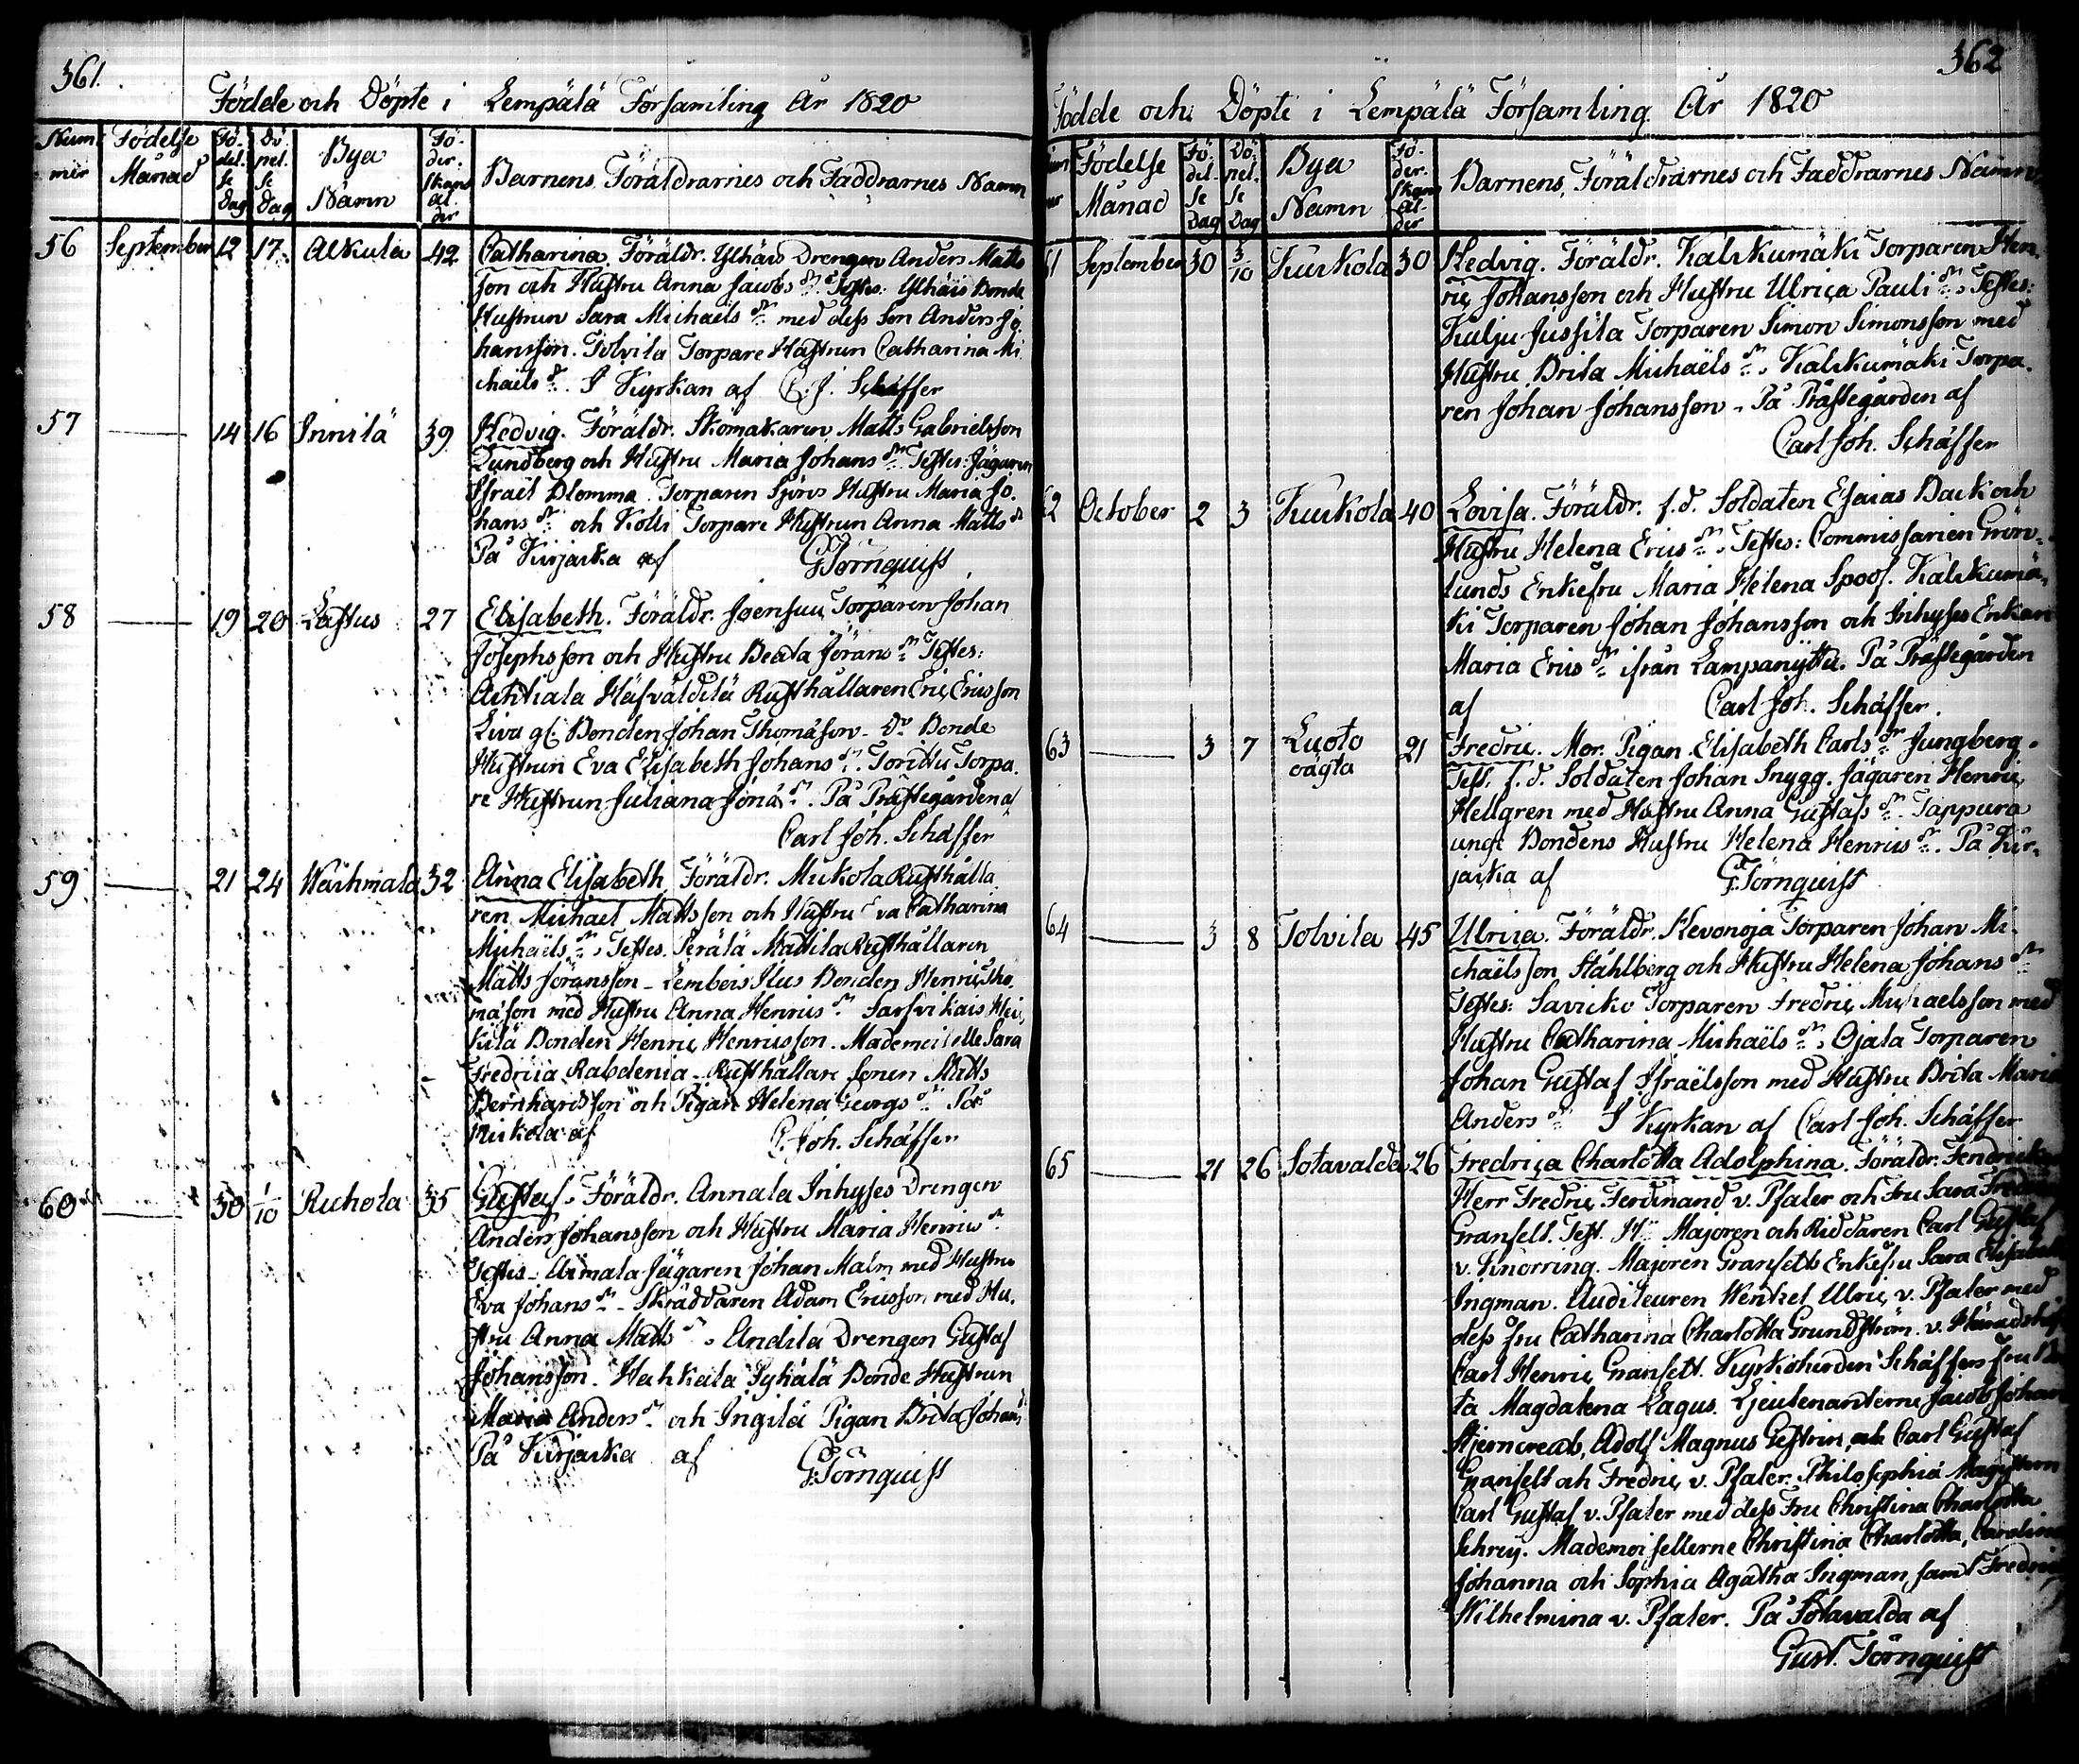 361.
Födde och Döpte i Lempälä Församling År 1820
Num mer
Födelse Månad
Fö- del- se Dag
Dö- pel- se Dag
Bya Namn
Fö- der- skans ål- der
Barnens, Föräldrarnes och Faddrarnes Namn
56 September 12 17 Alkula 42 Catharina. Föräldr. Ylhäis Drengen Anders Matts
son och Hustru Anna Jacobs dr. Testes: Ylhäis Bonde
Hustrun Sara Michaels dr med dess Son Anders Jo-
hansson. Tolvila Torpare Hustrun Catharina Mi
chaels dr. I Kyrkan af C. J. Schäffer
57 14 16 Innilä 39 Hedvig. Föräldr. Skomakaren Matts Gabrielsson
Lundberg och Hustru Maria Johans dr Testes: Jägaren
Israel Blomma. Torparen Sjörös Hustru Maria Jo-
hans dr och Kolli Torpare Hustrun Anna Matts dr
På Kirjaska af G. Törnquist
58 19 20 Lastus 27 Elisabeth. Föräldr: Joensuu Torparen Johan
Josephsson och Hustru Beata Jörans dr Testes:
Ahtiala Rusthållaren Eric Ericsson
Liva gl: Bonden Johan Thomasson - Do Bonde
Hustrun Eva Elisabeth Johans dr. Torittu Torpa-
re Hustrun Juliana Jonæ dr. På Prästegården af
Carl Joh. Schäffer
59 21 24 Waihmala 32 Anna Elisabeth Föräldr. Mickola Rusthålla
ren Michael Mattsson och Hustru Eva Catharina
Michaëls dr, Testes. Perälä Mattila Rusthållaren
Matts Jöransson - Lembois Ilus Bonden Henric Tho-
mason med Hustru Anna Henrics dr Sarsvikais Hei
kilä Bonden Henric Henricsson. Mademoiselle Sara
Fredrica Rabdenia - Rusthållare Sonen Matts
Bernhardsson och Pigan Helena Georgs dr På
Mickola af C. Joh. Schäffer
60 30 1/10 Kuckola 35 Gustaf. Föräldr. Annala Inhyses Drengen
Anders Johansson och Hustru Maria Henrics dr
Testes - Aimala Jägaren Johan Malm med Hustru
Eva Johans dr - Skräddaren Adam Ericsson med Hu-
stru Anna Matts dr, Andila Drengen Gustaf
Johansson. Hahkala Pyhälä Bonde Hustrun
Maria Anders dr och Ingilä Pigan Brita Johans
På Kirjaska af G. Törnquist
362
Födde och Döpte i Lempälä Församling År 1820
Födelse Månad
Fö- del- se Dag
Dö- pel- se Dag
Bya Namn
Fö- der- skans ål- der
Barnens, Föräldrarnes och Faddrarnes Namn
61 September 30 3/10 Kuckola 30 Hedvig. Föräldr. Kalskumäki Torparen Hen-
ric Johansson och Hustru Ulrica Pauli dr, Testes:
Kulju Jussila Torparen Simon Simonsson med
Hustru Brita Michaëls dr, Kalskumäki Torpa-
ren Johan Johansson - På Prästegården af
Carl Joh. Schäffer
62 October 2 3 Kuckola 40 Lovisa. Föräldr. f.d. Soldaten Esaias Back och
Hustru Helena Erics dr, Testes: Commissarien Grön-
lunds Enkefru Maria Helena Spoof. Kalskumä-
ki Torparen Johan Johansson och Inhyses Enkan
Maria Erics dr ifrån Lampanytta. På Prästegården
af Carl Joh. Schäffer.
63 3 7 Luoto oagta 21 Fredric. Mor. Pigan Elisabeth Carls dr Jungberg.
Test. f.d. Soldaten Johan Snygg. Jägaren Henric
Hellgren med Hustru Anna Gustafs dr. Tappura
unge Bondens Hustru Helena Henrics dr. På Kir-
jaska af G. Törnquist
64 3 8 Tolvila 45 Ulrica. Föräldr. Hevonoja Torparen Johan Mi-
chaëlsson Ståhlberg och Hustru Helena Johans dr
Testes: Savicko Torparen Fredric Michaelsson med
Hustru Catharina Michaëls dr, Ojala Torparen
Johan Gustaf Israëlsson med Hustru Brita Maria
Anders dr I Kyrkan af Carl Joh. Schäffer
65 21 26 Sotavalda 26 Fredrica Charlotta Adolphina. Föräldr. Fendricken
Herr Fredric Ferdinand v. Pfaler och Fru Sara
Granfelt. Test. Hr Majoren och Riddaren Carl Gustaf
v. Knorring. Majoren Granfelts Enkefru Sara Elisabeth
Ingman. Auditeuren Henkel Ulric v. Pfaler med
dess fru Catharina Charlotta Grundström. v. Häradshöf
Carl Henric Granfelt. Kyrkoherden Schäffers fru
ta Magdalena Lagus. Lieutenanterne Jacob Johan
Stjerncreab, Adolf Magnus Gestrin och Carl Gustaf
Granfelt och Fredric v. Pfaler. Philosophiæ Magistern
Carl Gustaf v. Pfaler med dess Fru Christina Charlotta
Schrey. Mademoisellerne Christina Charlotta, Carolina
Johanna och Sophia Agatha Ingman, samt Fredrica
Wilhelmina v. Pfaler. På Sotavalda af
Gust. Törnquist